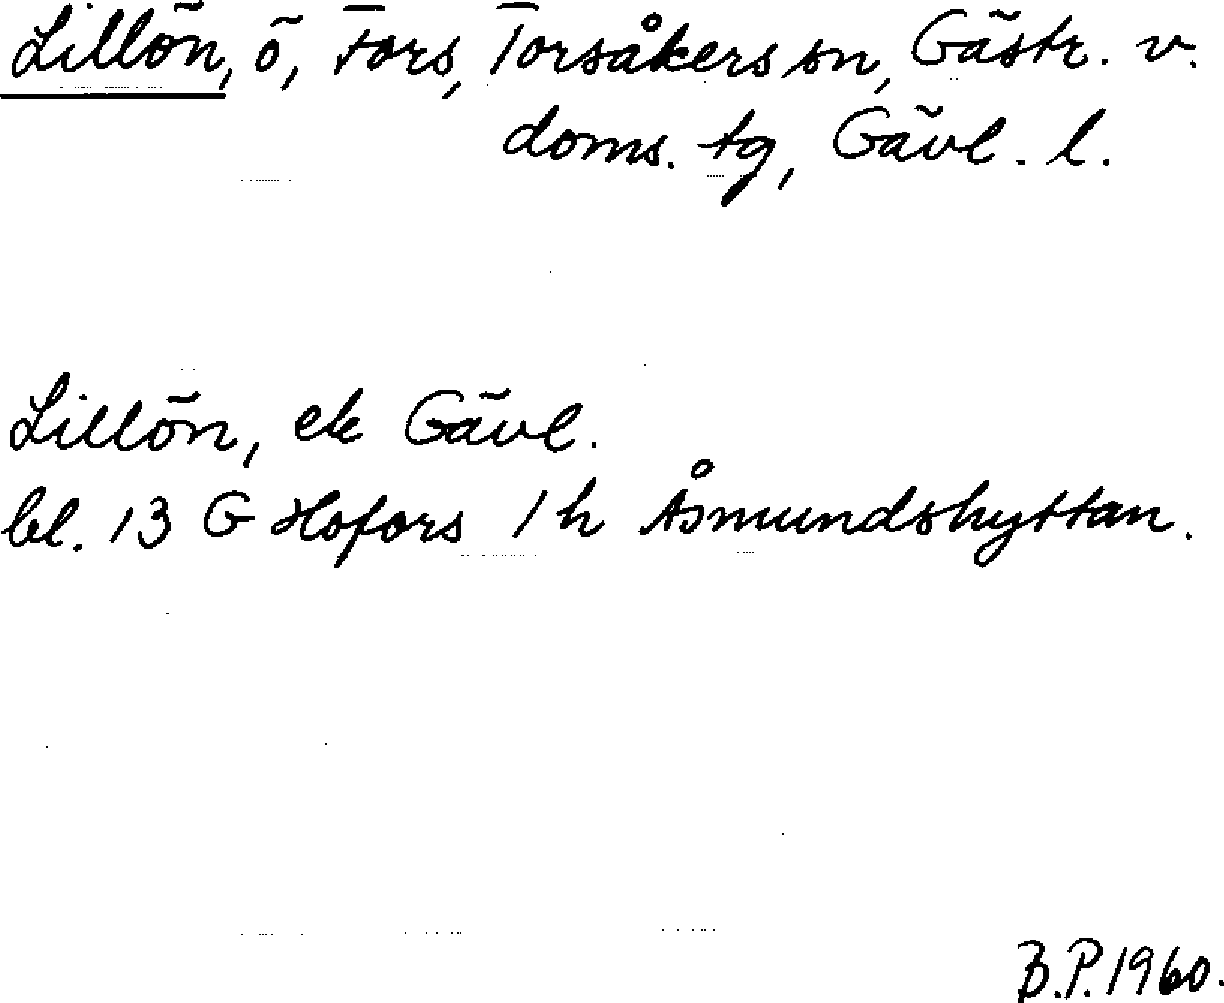 Lillön, ö, Fors, Torsåkers sn, Gästr. v.
doms. tg, Gävl. l.
Lillön, ek Gävl.
bl. 13 G Hofors 1 h Åsmundshyttan.
B.P. 1960.